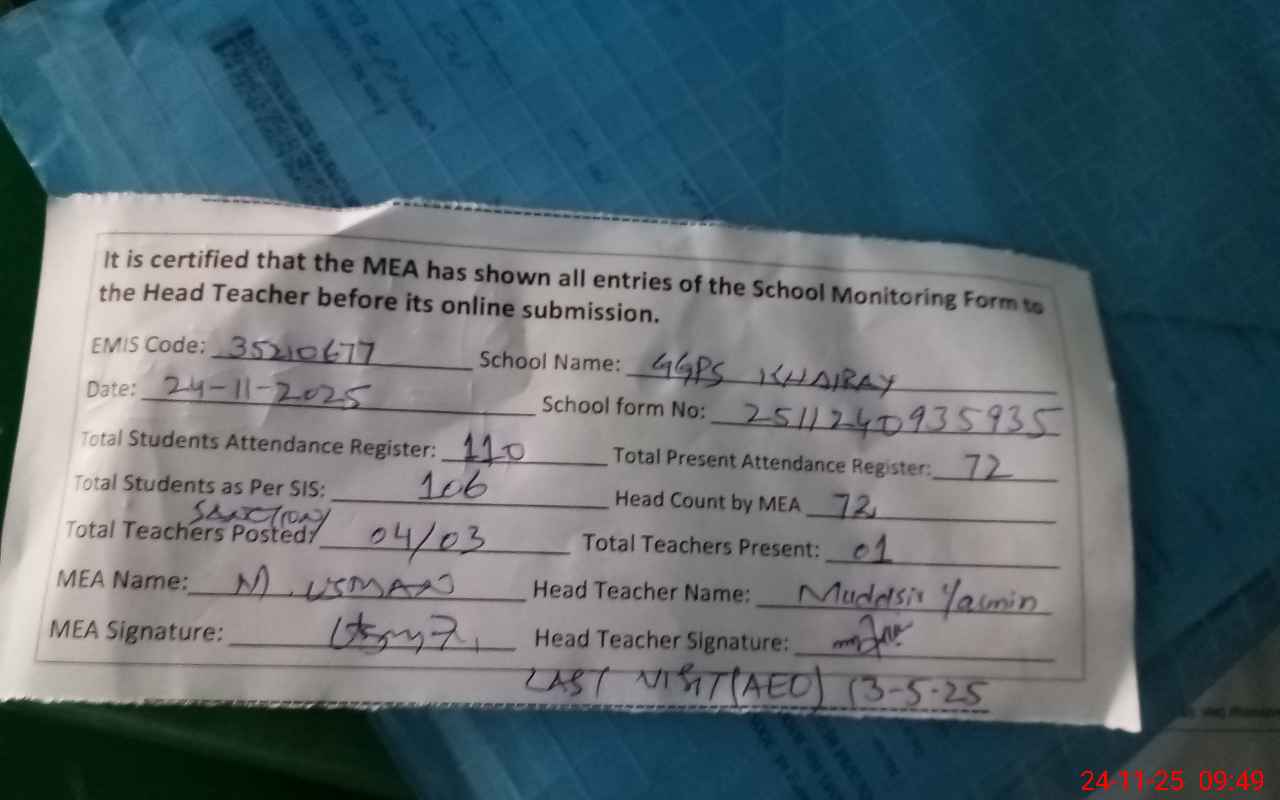 It is certified that the MEA has shown all entries of the School Monitoring Form to
the Head Teacher before its online submission.
EMIS Code: 35210677 School Name: GGPS KHAIRAY
Date: 24-11-2025 School form No: 2511240935935
Total Students Attendance Register: 110 Total Present Attendance Register: 72
Total Students as Per SIS: 106 Head Count by MEA 72
SANCTION/
Total Teachers Posted: 04/03 Total Teachers Present: 01
MEA Name: M. USMAN Head Teacher Name: Muddsir Yasmin
MEA Signature: Head Teacher Signature:
LAST VISIT (AEO) 13-5-25
24-11-25 09:49